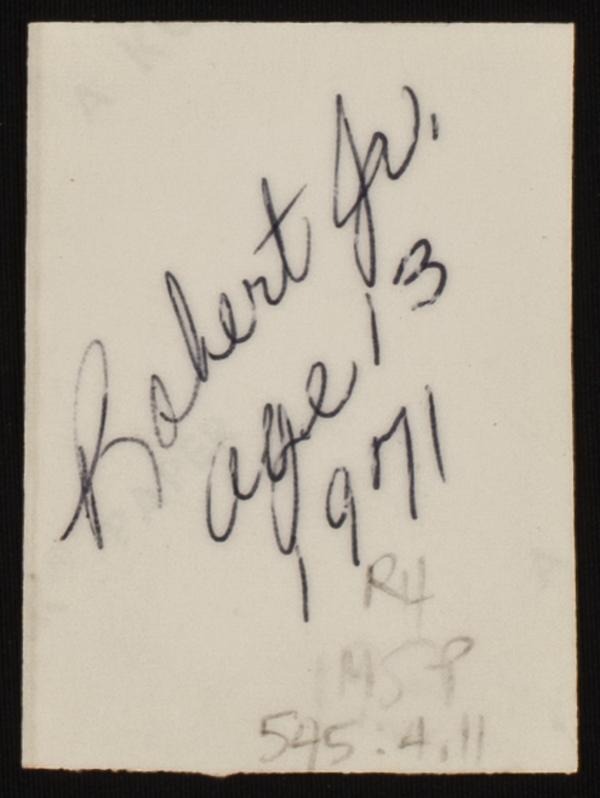 Robert Jr.
age 13
1971
R4
1MSP
545:4.11